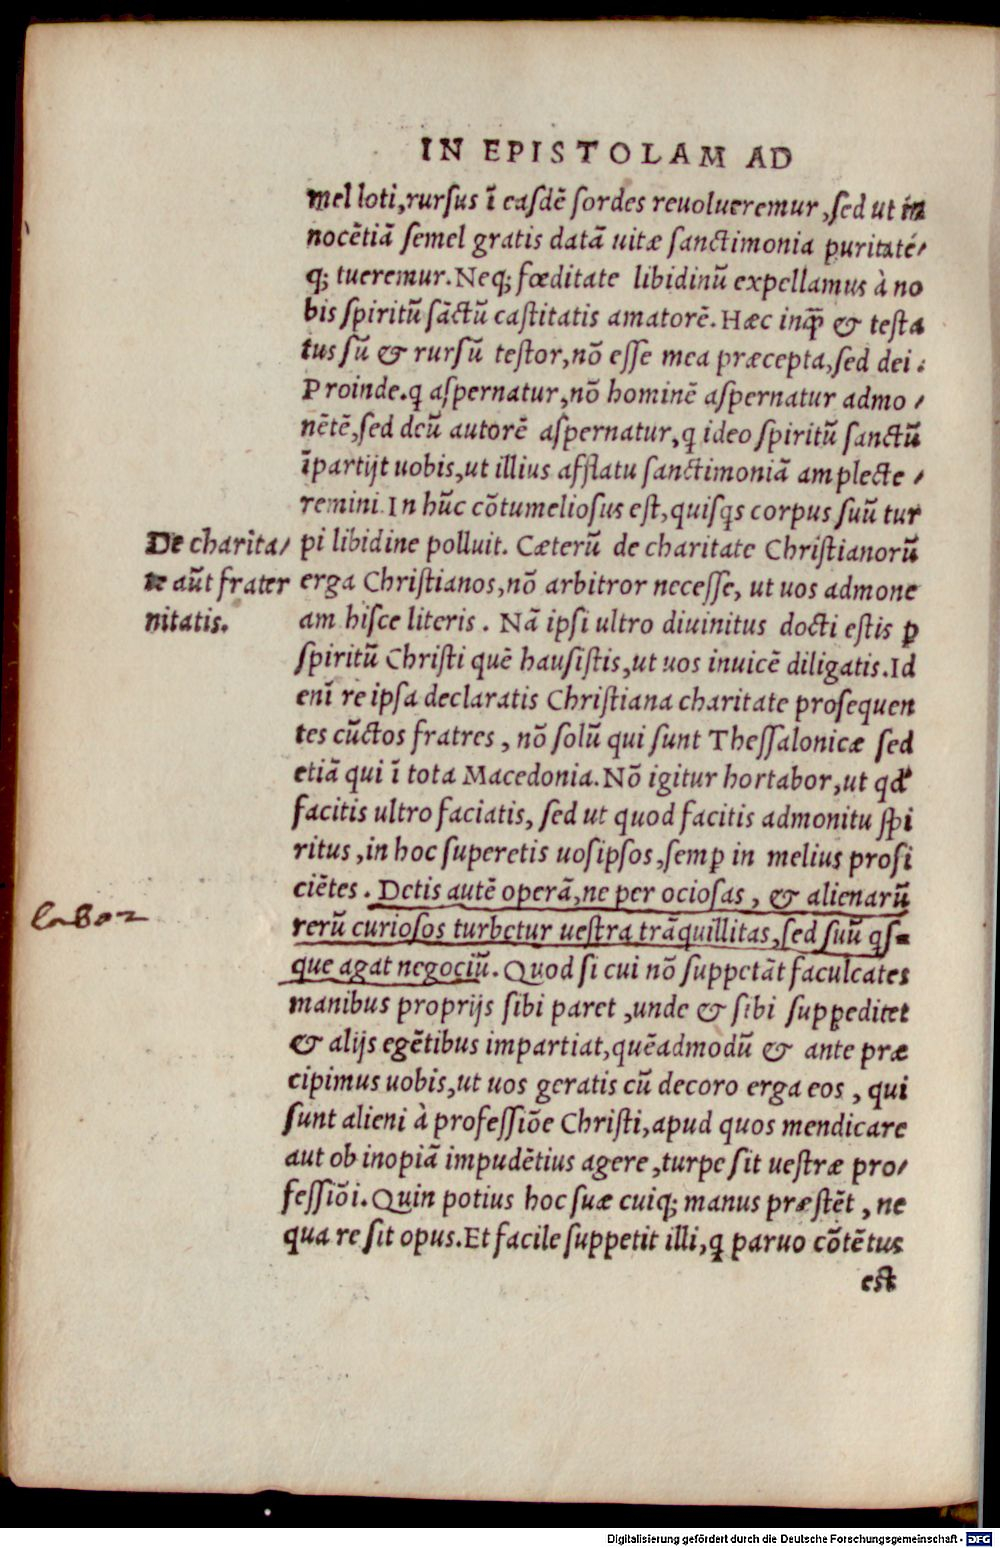 IN EPISTOLAM AD
mel loti, rursus ī easdē sordes reuolueremur, sed ut in
nocētiā semel gratis datā uitæ sanctimonia puritaté/
q; tueremur. Neq; fœditate libidinū expellamus à no
bis spiritū sāctū castitatis amatorē. Hæc inquā & testa
tus sū & rursū testor, nō esse mea præcepta, sed dei:
Proinde. q aspernatur, nō hominē aspernatur admo/
nētē, sed deū autorē aspernatur, q ideo spiritū sanctū
īpartijt uobis, ut illius afflatu sanctimoniā amplecte/
remini. In hūc cōtumeliosus est, quisqs corpus suū tur
De charita/
te aūt frater
nitatis.
pi libidine polluit. Cæterū de charitate Christianorū
erga Christianos, nō arbitror necesse, ut uos admone
am hisce literis. Nā ipsi ultro diuinitus docti estis ꝑ
spiritū Christi quē hausistis, ut uos inuicē diligatis. Id
enī re ipsa declaratis Christiana charitate prosequen
tes cūctos fratres, nō solū qui sunt Thessalonicæ sed
etiā qui ī tota Macedonia. Nō igitur hortabor, ut qd'
facitis ultro faciatis, sed ut quod facitis admonitu spi
ritus, in hoc superetis uosipsos, semꝑ in melius profi
ciētes. Detis autē operā, ne per ociosas, & alienarū
labor
rerū curiosos turbetur uestra trāquillitas, sed suū qs=
que agat negociū. Quod si cui nō suppetāt facultates
manibus proprijs sibi paret, unde & sibi suppeditet
& alijs egētibus impartiat, quēadmodū & ante præ
cipimus uobis, ut uos geratis cū decoro erga eos, qui
sunt alieni à professiōe Christi, apud quos mendicare
aut ob inopiā impudētius agere, turpe sit uestræ pro/
fessiōi. Quin potius hoc suæ cuiq; manus præstēt, ne
qua re sit opus. Et facile suppetit illi, q paruo cōtētus
est
Digitalisierung gefördert durch die Deutsche Forschungsgemeinschaft - DFG